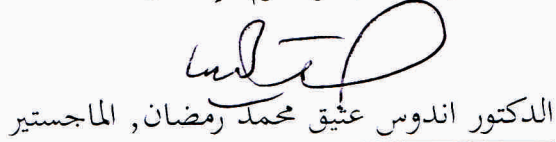 الدكتور اندوس عثيق محمد رمضان, الماجستير